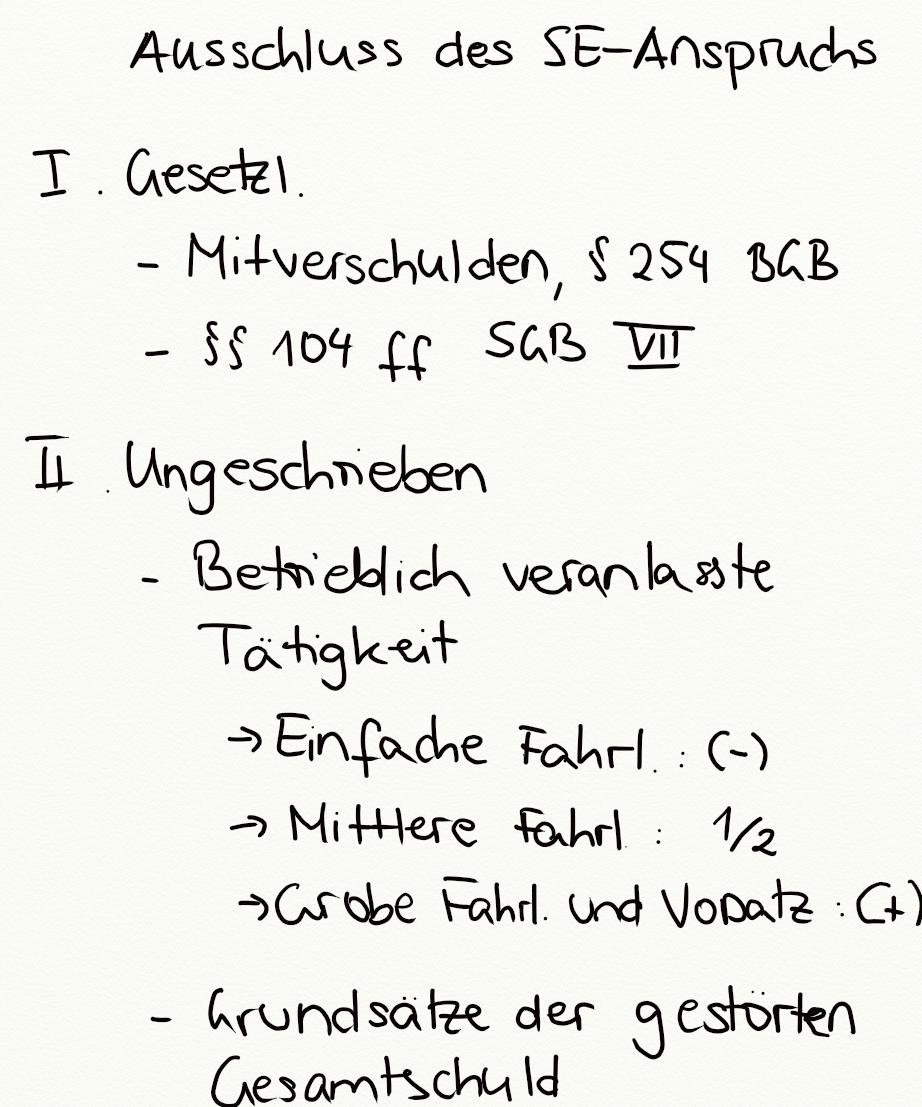 Ausschluss des SE-Anspruchs
I. Gesetzl.
- Mitverschulden, § 254 BGB
- §§ 104 ff SGB VII
II. Ungeschrieben
- Betrieblich veranlasste
Tätigkeit
→ Einfache Fahrl. : (-)
→ Mittlere Fahrl. : 1/2
→ Grobe Fahrl. und Vorsatz : (+)
- Grundsätze der gestörten
Gesamtschuld